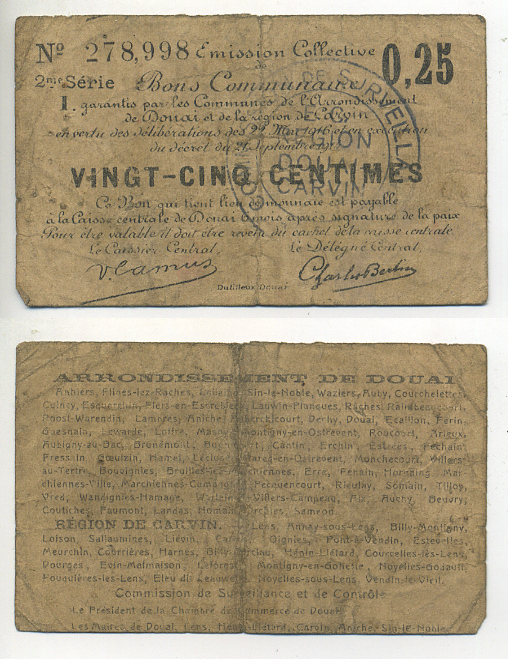 Nº 278,998 Emission Collective 0,25
de
2me Série Bons Communaux
I. garantis par les Communes de l'Arrondissement
de Douai et de la région de Carvin
en vertu des délibérations des Mai 1916 et en exécution
du décret du 21 Septembre
VINGT-CINQ CENTIMES
Ce Bon qui tient lieu de monnaie est payable
à la Caisse centrale de Douai 6 mois après signature de la paix
Pour être valable il doit être revêtu du cachet de la caisse centrale
Le Caissier Central, Le Délégué Central
V. Camus Charles Bertin
Dutilleux Douai
DE SURVEILLA
REGION
DOUAI
CARVIN
ARRONDISSEMENT DE DOUAI
Anhiers, Flines-lez-Raches, Sin-le-Noble, Waziers, Auby, Courchelettes
Cuincy, Esquerchin, Flers-en-Escrebieux, Lauwin-Planques, Raches, Raimbeaucourt
Roost-Warendin, Lambres, Aniche, Dechy, Douai, Ecaillon, Férin
Guesnain, Lewarde, Loffre, Montigny-en-Ostrevent, Roucourt, Arleux,
Aubigny-au-Bac, Brunémont, Cantin, Erchin, Estrées, Féchain
Fressain, Gœulzin, Hamel, Lécluse, Marcq-en-Ostrevent, Monchecourt, Villers-
au-Tertre, Bouvignies, Bruille-lez-Marchiennes, Erre, Fenain, Hornaing, Mar-
chiennes-Ville, Marchiennes-Campagne, Pecquencourt, Rieulay, Somain, Tilloy,
Vred, Wandignies-Hamage, Villers-Campeau, Aix, Auchy, Beuvry,
Coutiches, Faumont, Landas, Nomain, Orchies, Saméon.
RÉGION DE CARVIN. Lens, Annay-sous-Lens, Billy-Montigny,
Loison, Sallaumines, Liévin, Carvin, Oignies, Pont-à-Vendin, Estevelles,
Meurchin, Courrières, Harnes, Hénin-Liétard, Courcelles-les-Lens,
Dourges, Evin-Malmaison, Leforest, Montigny-en-Gohelle, Noyelles-Godault,
Fouquières-les-Lens, Eleu dit Leauwette, Noyelles-sous-Lens, Vendin-le-Vieil.
Commission de Surveillance et de Contrôle
Le Président de la Chambre de Commerce de Douai
Les Maires de Douai, Lens, Hénin-Liétard, Carvin, Aniche, Sin-le-Noble